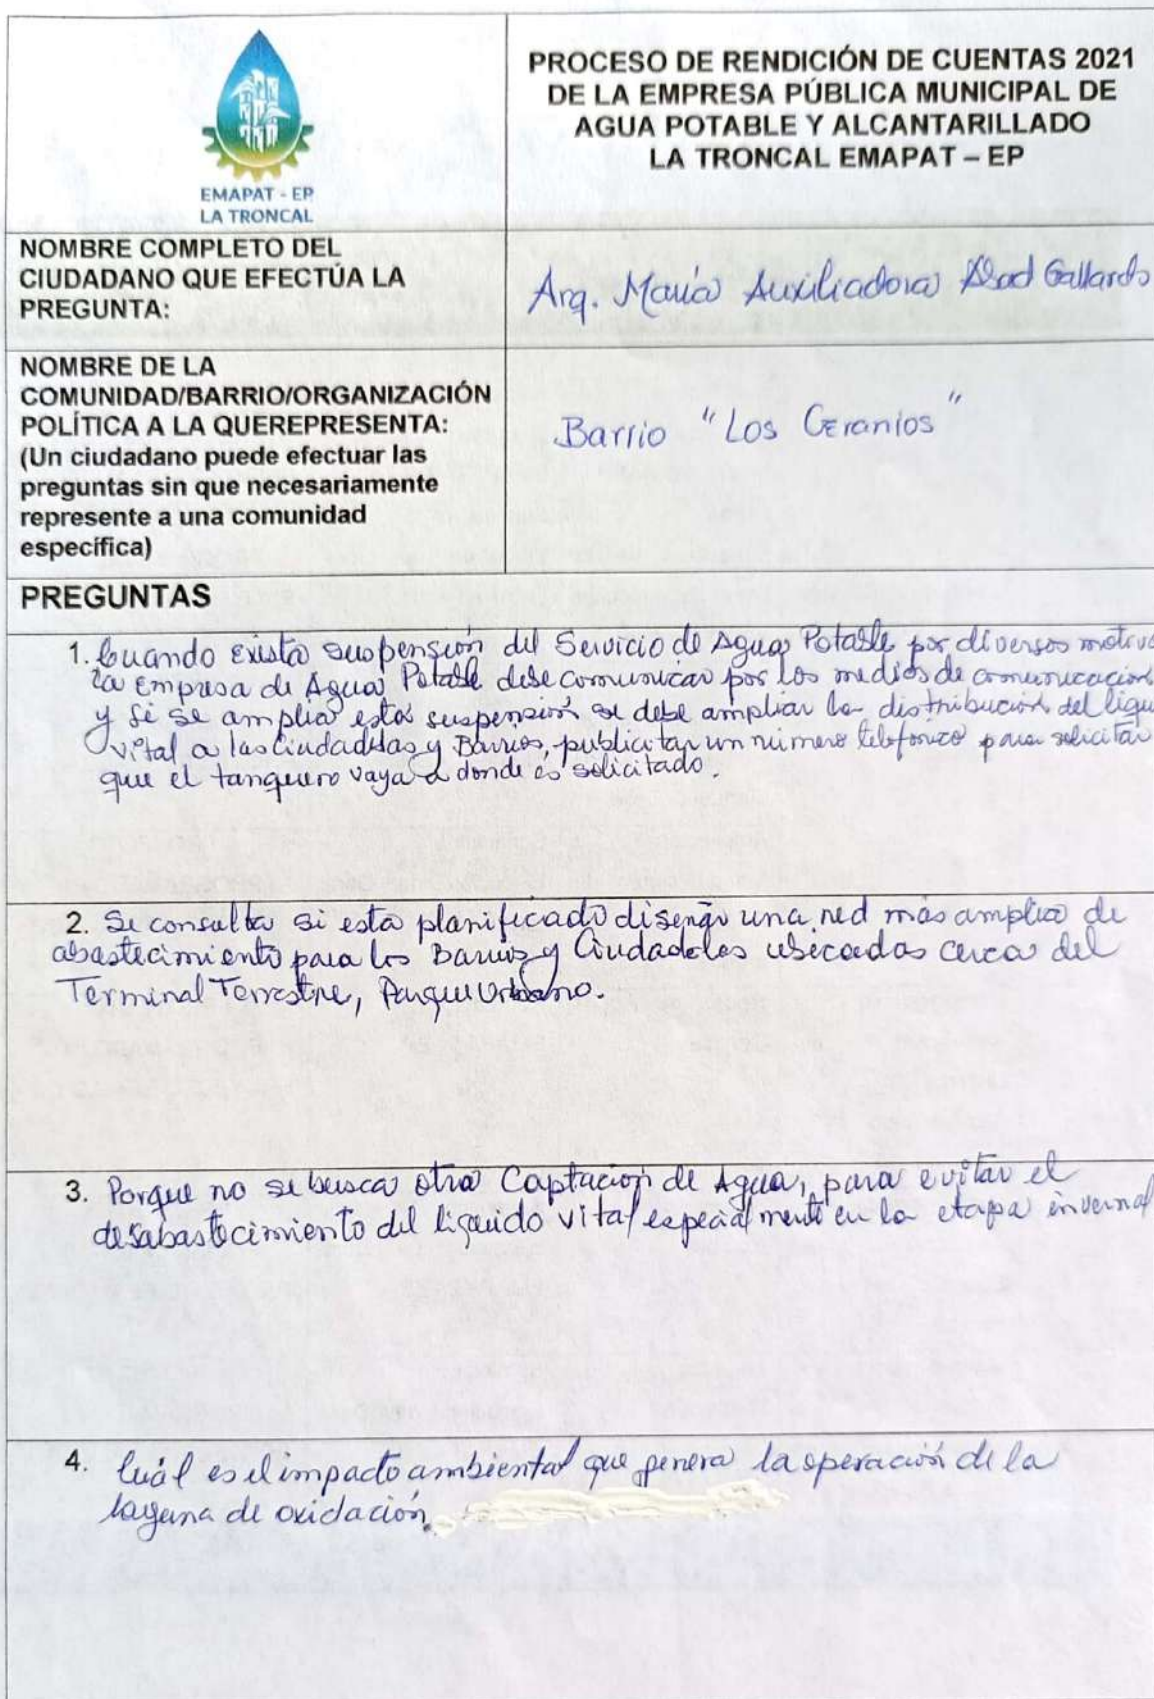 EMAPAT - EP
LA TRONCAL
PROCESO DE RENDICIÓN DE CUENTAS 2021
DE LA EMPRESA PÚBLICA MUNICIPAL DE
AGUA POTABLE Y ALCANTARILLADO
LA TRONCAL EMAPAT – EP
NOMBRE COMPLETO DEL
CIUDADANO QUE EFECTÚA LA
PREGUNTA:
Arq. María Auxiliadora Abad Gallardo
NOMBRE DE LA
COMUNIDAD/BARRIO/ORGANIZACIÓN
POLÍTICA A LA QUEREPRESENTA:
(Un ciudadano puede efectuar las
preguntas sin que necesariamente
represente a una comunidad
específica)
Barrio "Los Geranios"
PREGUNTAS
1. Cuando exista suspensión del Servicio de Agua Potable por diversos motivo
la empresa de Agua Potable debe comunicar por los medios de comunicación
y si se amplia esta suspensión se debe ampliar la distribución del liqui
vital a las Ciudadelas y Barrios, publicitar un número telefónico para solicitar
que el tanquero vaya a donde es solicitado.
2. Se consulta si esta planificado diseñar una red más amplia de
abastecimiento para los Barrios y Ciudadelas ubicadas cerca del
Terminal Terrestre, Parque Urbano.
3. Porque no se busca otra Captación de Agua, para evitar el
desabastecimiento del liquido vital especialmente en la etapa invernal
4. Cuál es el impacto ambiental que genera la operación de la
laguna de oxidación.